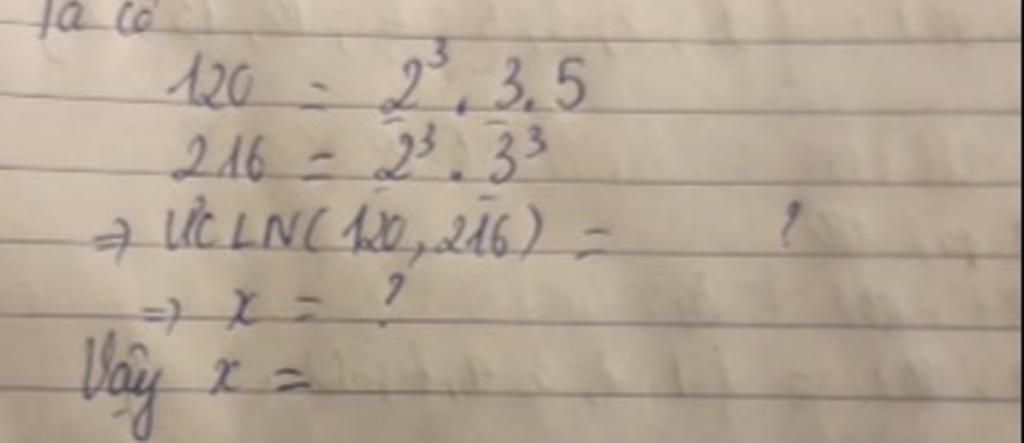 Ta có
120 = 2³ . 3 . 5
216 = 2³ . 3³
⇒ ƯCLN(120, 216) = ?
⇒ x = ?
Vậy x =